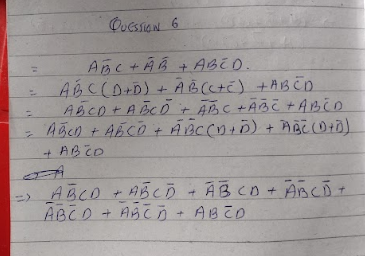 QUESTION 6
= AB̄C + ĀB̄ + ABC̄D.
= AB̄C(D+D̄) + ĀB̄(C+C̄) + ABC̄D
= AB̄CD + AB̄CD̄ + ĀB̄C + ĀB̄C̄ + ABC̄D
= AB̄CD + AB̄CD̄ + ĀB̄C(D+D̄) + ĀB̄C̄(D+D̄)
+ ABC̄D
=> AB̄CD + AB̄CD̄ + ĀB̄CD + ĀB̄CD̄ +
ĀB̄C̄D + ĀB̄C̄D̄ + ABC̄D